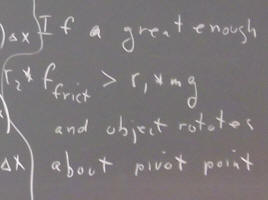 Δx If a great enough
r₂ * f frict > r, * mg
and object rotates
Δx about pivot point